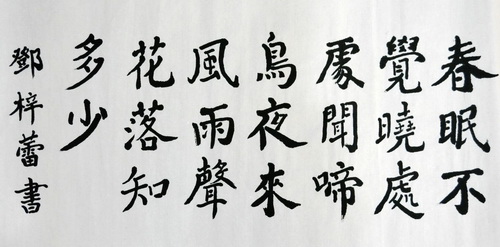 春眠不
覺曉處
處聞啼
鳥夜來
風雨聲
花落知
多少
鄧梓蕾書